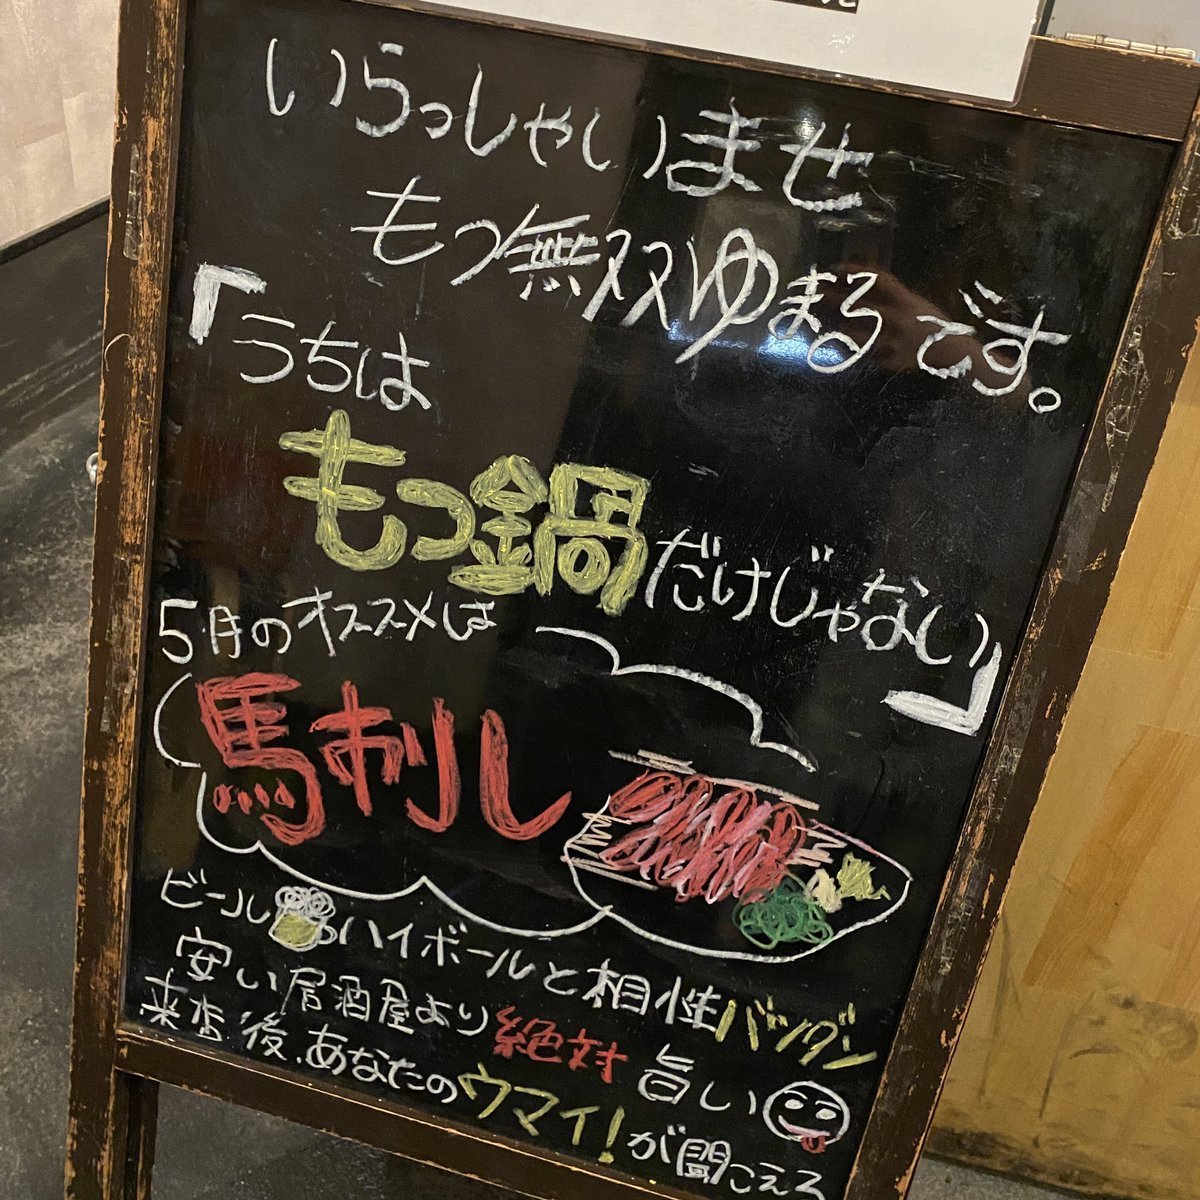 いらっしゃいませ
もつ無双ゆまるです。
「うちは
もつ鍋だけじゃない」
5月のオススメは
馬刺し
ビール ハイボールと相性バツグン
安い居酒屋より絶対旨い
来店後、あなたのウマイ！が聞こえる